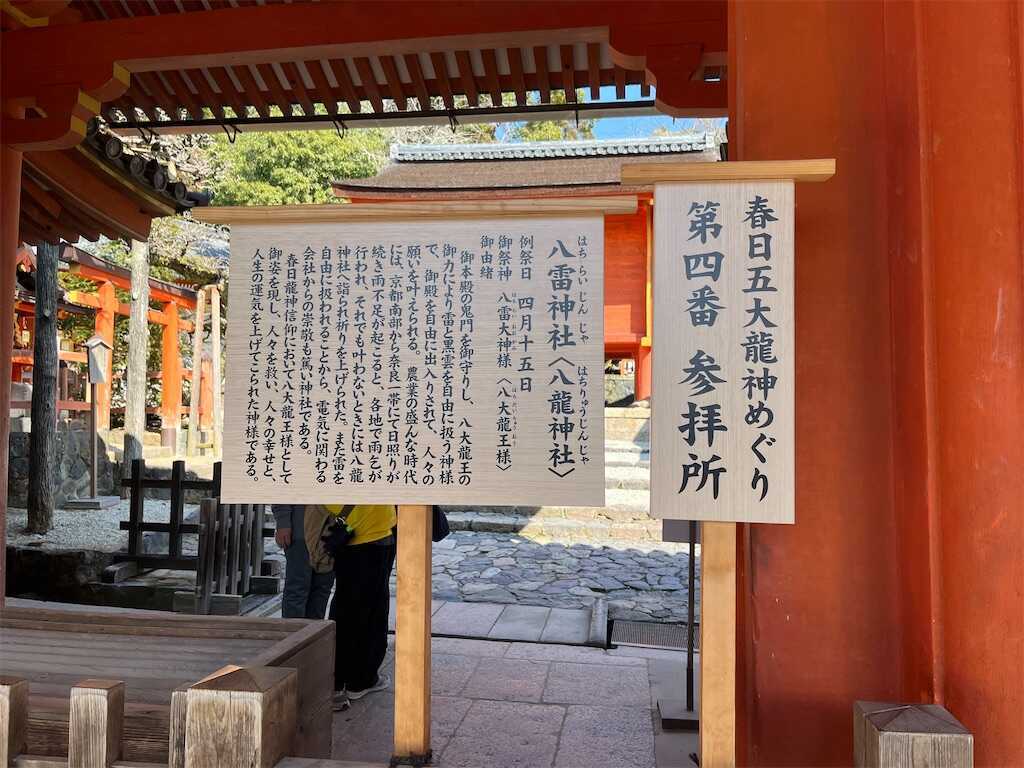 春日五大龍神めぐり
第四番 参拝所
八雷神社〈八龍神社〉
はち らい じん じゃ はちりゅうじんじゃ
例祭日 四月十五日
御祭神 八雷大神様〈八大龍王様〉
御由緒
御本殿の鬼門を御守りし、八大龍王の
御力により雷と黒雲を自由に扱う神様
で、御殿を自由に出入りされて、人々の
願いを叶えられる。農業の盛んな時代
には、京都南部から奈良一帯にて日照りが
続き雨不足が起こると、各地で雨乞が
行われ、それでも叶わないときには八龍
神社へ詣られ祈りを上げられた。また雷を
自由に扱われることから、電気に関わる
会社からの崇敬も篤い神社である。
春日龍神信仰において八大龍王様として
御姿を現し、人々を救い、人々の幸せと、
人生の運気を上げてこられた神様である。